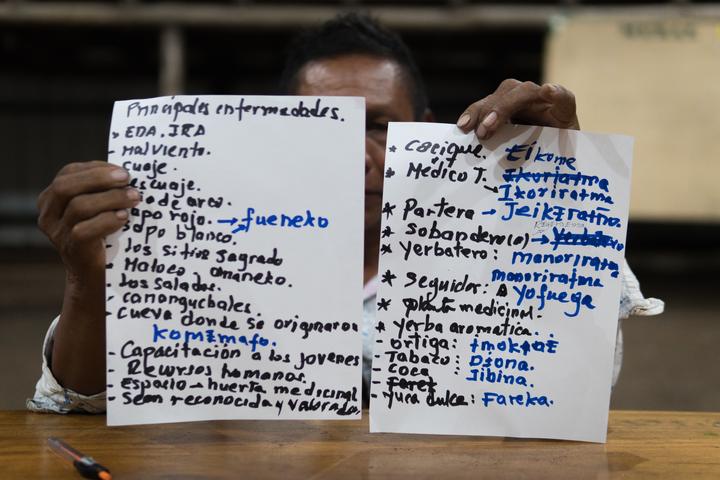 Principales enfermedades.
- EDA. IRA
- Malviento.
- cuaje.
de arco.
rojo. → fueneko
sapo blanco.
- los sitios sagrado
- Maloca anameko.
- los salados.
- cananguchales.
- cueva donde se originaron
komɨmafo.
- Capacitación a los jovenes
- Recursos humanos.
- espacio → huerta medicinal
- Sean reconocida y valorada
* cacique. Eikome
* Médico T. → Ikoriratma
Ikoriratma
* Partera → Jeikɨratma.
* Sobandero(a) →
* Yerbatero: manoriratma
manoriratma
* Seguidor: Yofuega
* planta medicinal.
* Yerba aromatica.
- ortiga:
- Tabaco: Dɨona.
- coca: Jibina.
- yuca dulce: Fareka.